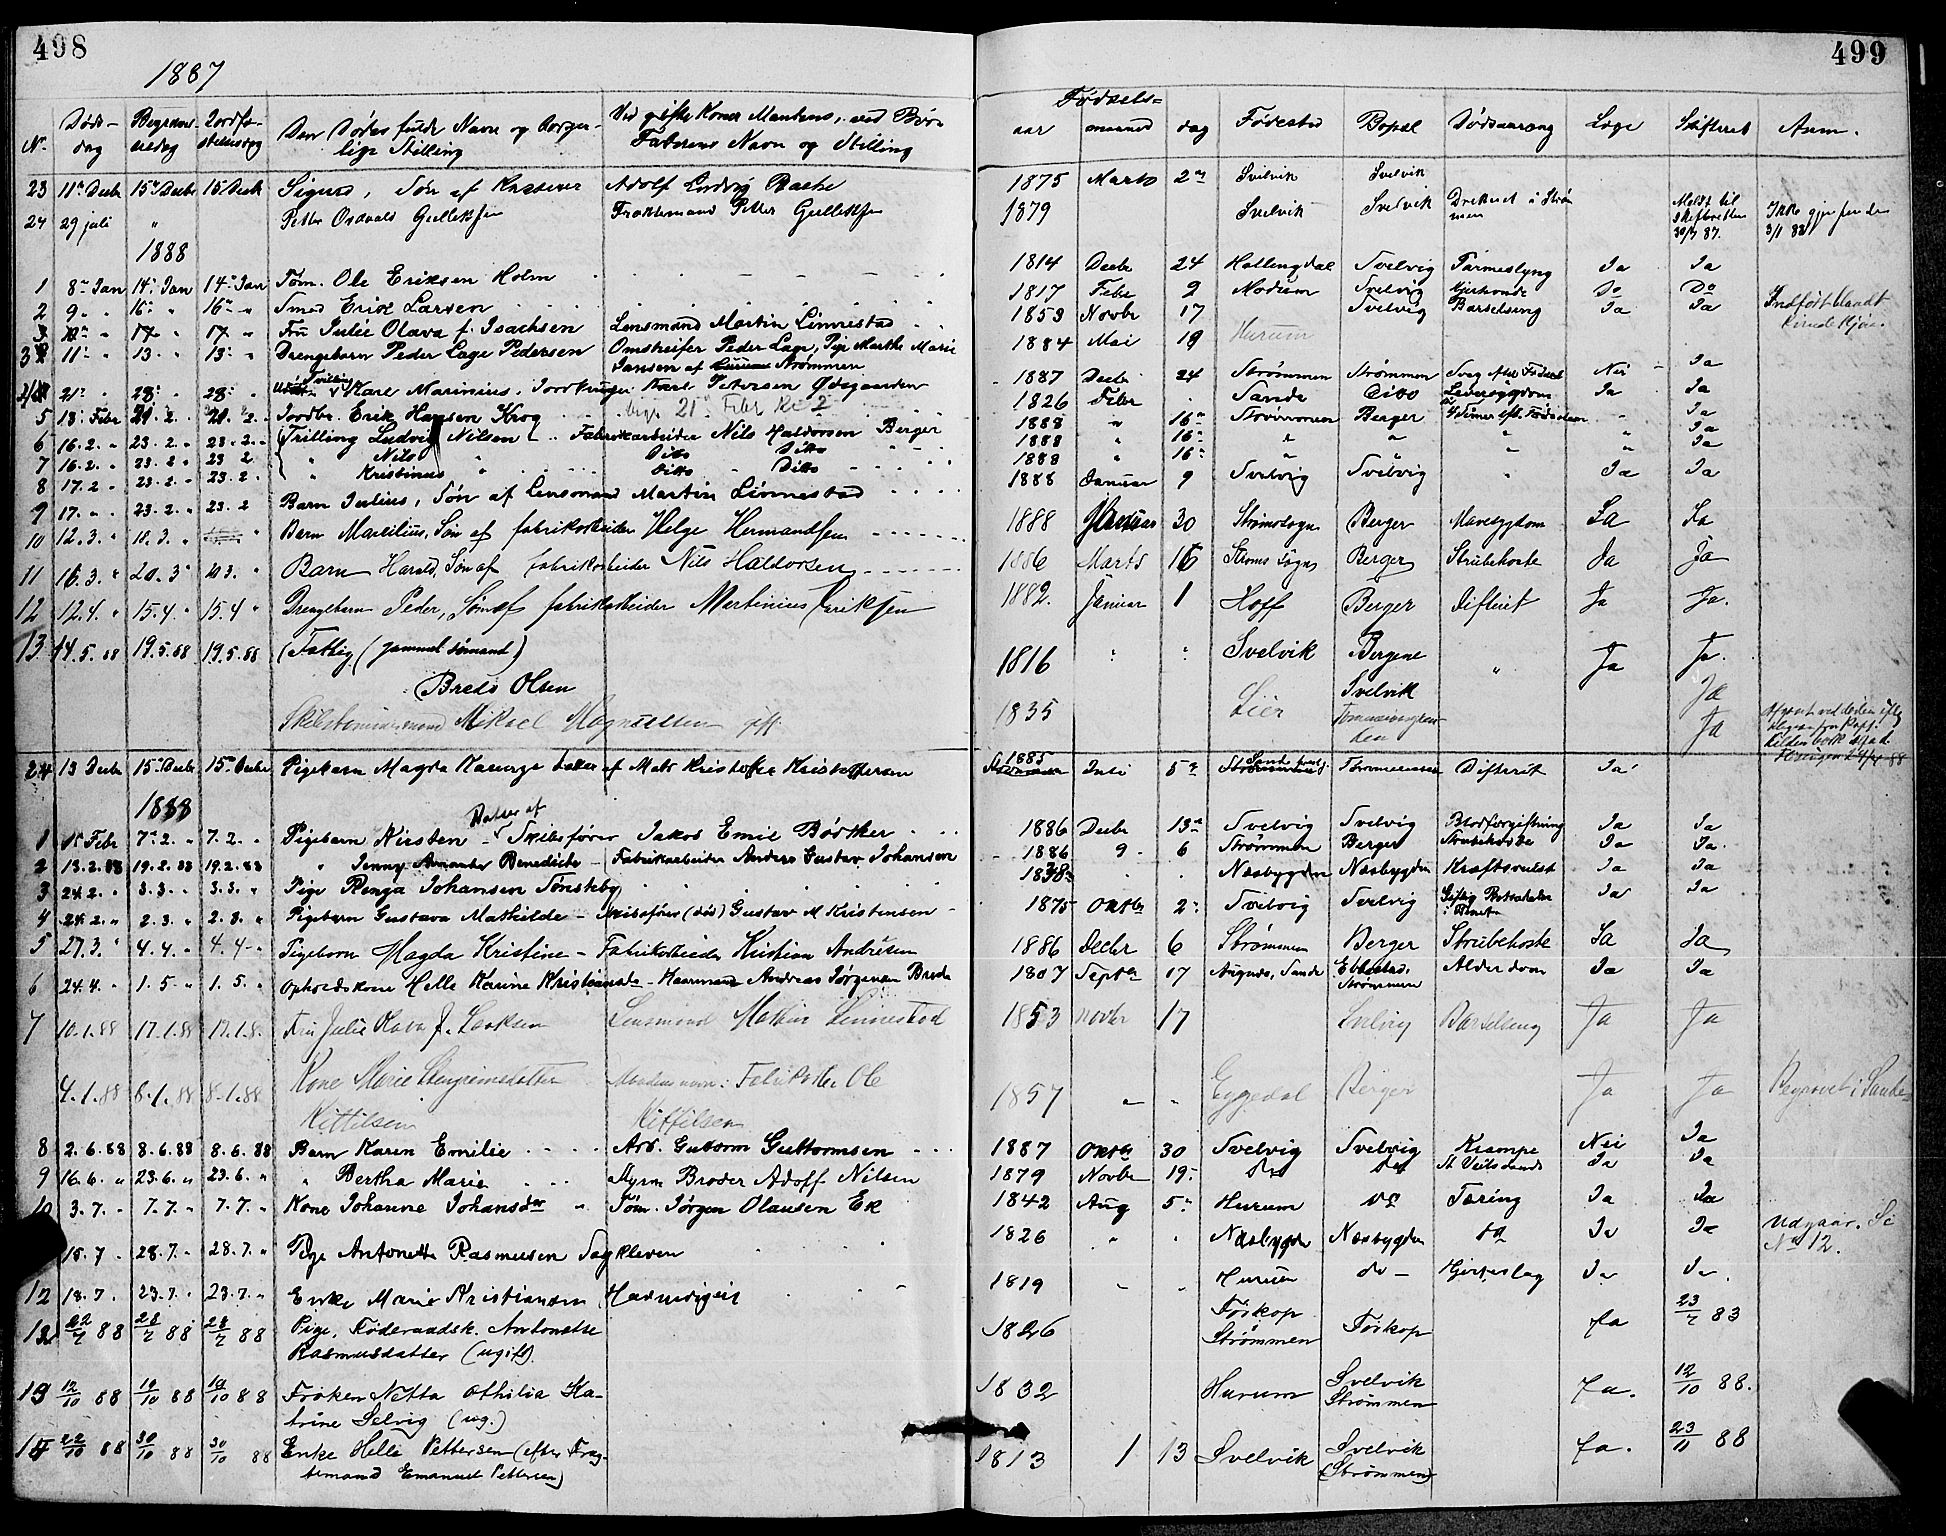 498
1887
N.
Døds-
dag
Begravel-
sesdag
Jordfæ-
stelsesdag
Den Dødes fulde Navn og borger-
lige Stilling
Ved gifte Koner Mandens, ved Børn
Faderens Navn og Stilling
23 11te Decbr 15de Decbr 15 Decbr Sigurd, Søn af Kasserer Adolf Ludvig Bache
24 29 juli " Petter Osdvald Gulleksen Fragtemand Petter Gulleksen
1888
1 8de Jan 14de Jan 14de Jan Tøm. Ole Eriksen Holm
2 9 " 16de " 16de " Smed Erik Larsen
3 10de " 17 " 17 " Fru Julie Olava f. Isachsen Lensmand Martin Linnestad
3 11te " 13 " 13 " Drengebarn Peder Lage Pedersen Omstreifer Peder Lage, Pige Marthe Marie
Jansen af Strømmen
21 " 28 " 28 " Tvilling Karl Marinius, Jordbruger Karl Petersen Ødegaarden
5 18 Febr 21 2 " 21 2 " Jordbr. Erik Hansen Krog begr. 21de Febr Kl 2
6 16.2. " 23.2. " 23.2. " Trilling Ludvig Nilsen - Fabrikarbeider Nils Haldorsen Berger
7 16.2. " 23.2 " 23 2 " Nils Ditto Ditto
8 17.2 " 23.2. " 23.2. " Kristinus " Ditto - Ditto
9 17. " 23.2. " 23.2 Barn Julius, Søn af Lensmand Martin Linnestad
10 12.3. " 18.3. " Barn Marselius, Søn af fabrikarbeider Helge Hermandsen
11 16.3. " 20.3 " 20 3. " Barn Harald, Søn af fabrikarbeider Nils Haldorsen
12 12.4. " 15.4 " 15.4 " Drengebarn Peder, Søn af fabrikarbeider Martinius Eriksen
13 14.5.88 19.5.88 19.5.88 Fattig (gammel sømand)
Brede Olsen
Skibstømmermand Mikael Magnussen gift.
24 13 Decbr 15de Decbr 15de Decbr Pigebarn Magda Karenze Datter af Mats Kristoffer Kristoffersen
1888
1 15 Febr 7de 2. " 7.2. " Pigebarn Kirsten - Datter af Skibsfører Jakob Emil Bødtker
2 13.2.88 19.2.88 19.2.88 " Jenny Amanda Benedicte - Fabrikarbeider Anders Gustav Johansen
3 24.2. " 3.3. " 3.3. " Pige Renga Johansen Tønsteby
4 24.2. " 2.3. " 2.3. " Pigebarn Gustava Mathilde - Skibsfører (død) Gustav M Kristensen
5 27.3. " 4.4. " 4.4 " Pigebarn Magda Kristine - Fabrikarbeider Kristian Andresen
6 24.4. " 1.5. " 1.5. " Opholdskone Helle Karine Kristiansd. - Haarmand Andreas Jørgensen Brede
7 10.1.88 17.1.88 17.1.8. Fru Julie Olava f. Isaksen Lensmand Mathin Linnestad
4.1.88 8.1.88 8.1.88 Kone Marie Stengrimsdatter Mandens navn: Fabrikarb. Ole
Kittilsen Kittilsen
8 2.6.88 8.6.88 8.6.88 Barn Karen Emilie Arb. Guttorm Guttormsen
9 16.6. " 23.6. " 23.6. " " Bertha Marie Styrm Broder Adolf Nilsen
10 3.7. " 7.7. " 7.7. " Kone Johanne Johansdr " Tøm. Jørgen Olausen Ek
15.7 " 28.7. " 28.7. " Pige Antonette Rasmussen Sagkleven
12 18.7. 23.7. " 23.7. " Enke Marie Kristiansen Hasundigeit
12 22/7 88 28/7 88 28/7 88 Pige, Føderaadsk. Antonette
Rasmusdatter (ugift).
13 12/10 88 19/10 88 19/10 88 Frøken Netta Othilia Ka-
trine Selvig (ug.)
14 22/10 88 30/10 88 30/10 88 Enke Helle Pettersen (efter Frag-
temand Emanuel Pettersen)
499
Fødsels-
aar maaned dag Fødested Bopæl Dødsaarsag Læge Skifteret Anm.
1875 Marts 2den Svelvik Svelvik
1879 Svelvik Svelvik Druknet i Strøm
men Meldt til
Skifteretten
30/7 87. Ikke gjenfunden
3/1 88
1814 Decbr 24 Hallingdal Svelvig Tarmeslyng Ja Ja
1817 Febr 9 Modum Svelvig Do Do
1853 Novbr 17 Svelvig Barselseng Ja Ja Indført blandt
Kvindekjøn.
1884 Mai 19 Hurum
1887 Decbr 24 Strømmen Strømmen Svag efter Fødsel Nei - Ja
1826 Febr . Sande Ditto Leversygdom Ja Ja
1888 " 16de Strømmen Berger 4 Timer eft. Fødselen - Ja
1888 " 16de " " " " Ja
1888 " 16 " " " " Ja
1888 Januar 9 Svelvig Svelvig " Ja Ja
1888 Januar 30 Strømsogn Berger Mavesygdom Ja Ja
1886 Marts 16 Strøms Sogn Berger Strubehoste Ja Ja
1882. Januar 1 Hoff Berger Difterit Ja Ja.
1816 " " Svelvik Bergene " Ja Ja.
1835 Lier Svelvik
Ja
Ja
1885 Juli 5te Strømmen Difterit Ja
1886 Decbr 13de Svelvig Svelvig Blodforgiftning Ja Ja
1886 9 - 6 Strømmen Berger Strubehoste Ja Ja.
1838 . . Næsbygden Næsbygden Kræftsvulst Ja Ja
1875 Oktbr 2 Svelvig Svelvig Ja Ja
1886 Decbr 6 Strømmen Berger Strubehoste Ja Ja
1807 Septbr 17 Angnes, Sande Ebbestad,
Strømmen Alderdom Ja Ja
1853 novbr 17 Svelvig Barselseng Ja Ja
1857 " " Eggedal Berger Ja Ja Begravet i Sande
1887 Oktbr 30 Svelvig Svelvig Krampe Nei Ja
1879 Novbr 19 do do St Veitsdands Ja Ja
1842 Aug 5te Hurum do Tæring Ja Ja
1826 " " Næsbygden Næsbygden do Ja Ja Udgaar. Se
No 12.
1819 " " Hurum do - Hjerteslag Ja Ja.
1826 Foskop
Strømmen Foskop Ja 23/7 83
1832 Hurum Svelvik
Strømmen Ja. 12/10 88.
1813 1 13 Svelvik Svelvik
(Strømmen) Ja. 23/11 88